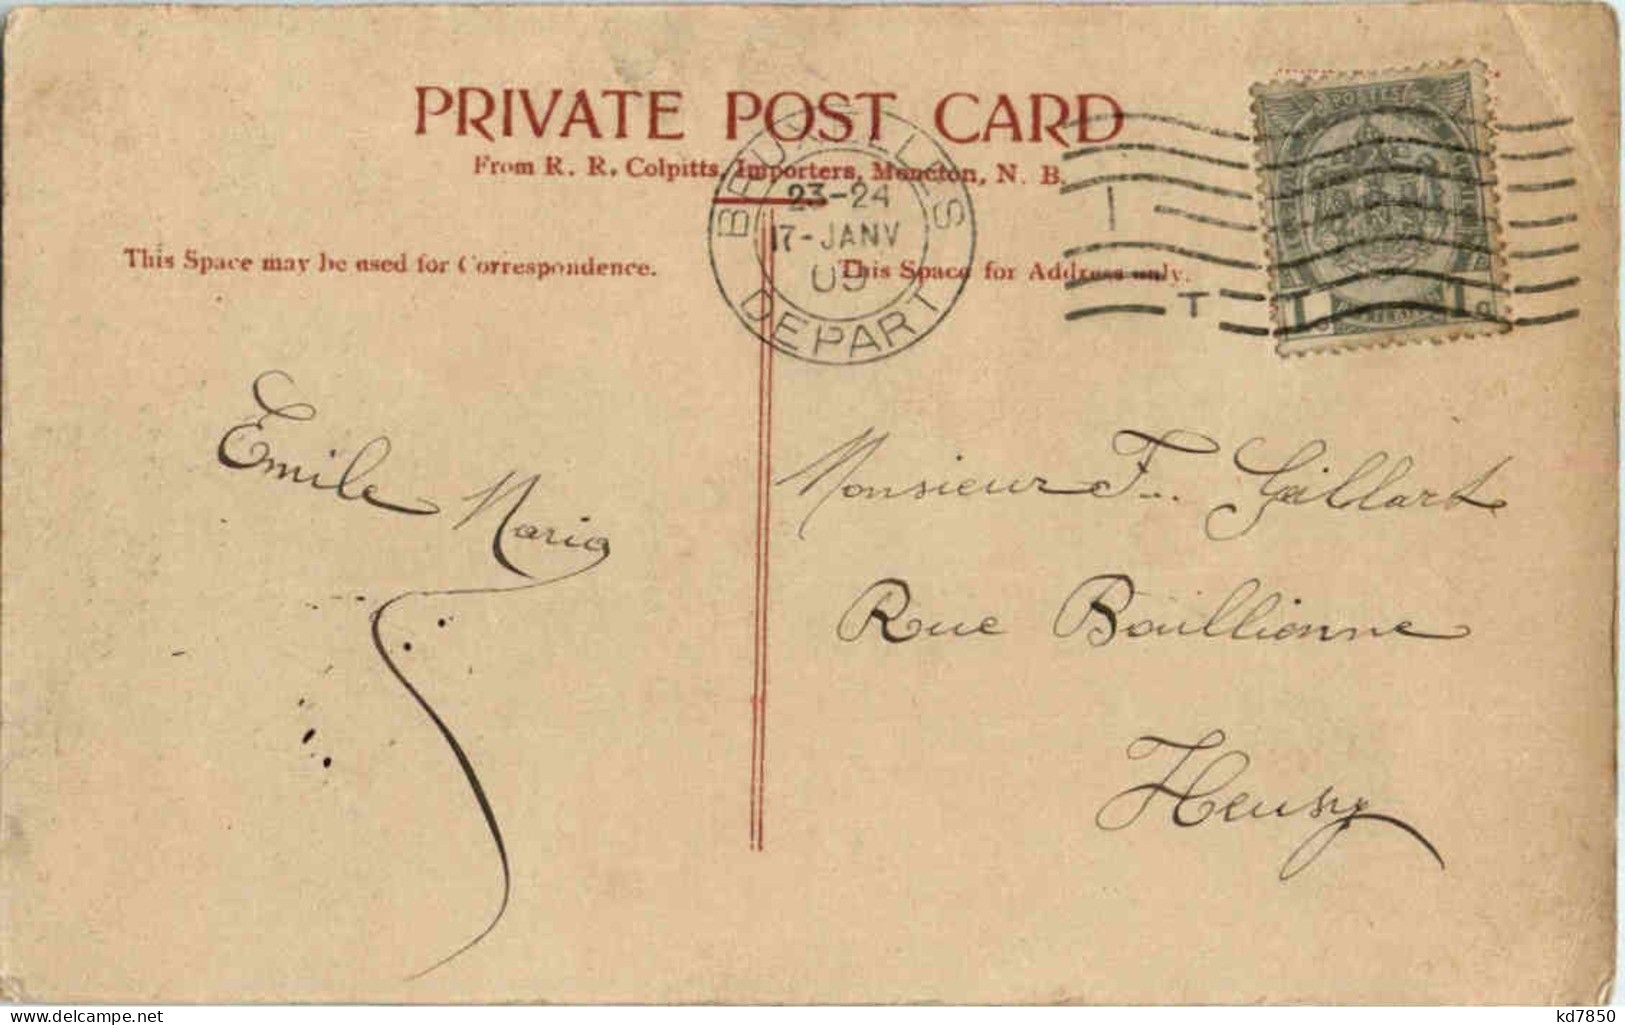 PRIVATE POST CARD
From R. R. Colpitts, Importers, Moncton, N. B.
BRUXELLES
23-24
17-JANV
09
DEPART
POSTES
1c 1c
This Space may be used for Correspondence.
This Space for Address only.
Emile Maria
Monsieur F. Gillart
Rue Boullienne
Heusy
kd7850